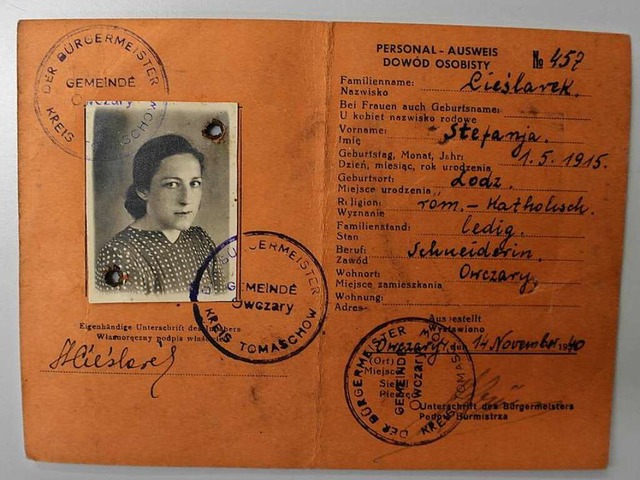 DER BÜRGERMEISTER
GEMEINDE
Owczary
KREIS TOMASCHOW
DER BÜRGERMEISTER
GEMEINDE
Owczary
KREIS TOMASCHOW
Eigenhändige Unterschrift des
Własnoręczny podpis
Cieślarek
PERSONAL-AUSWEIS № 457
DOWÓD OSOBISTY
Familienname: Cieślarek.
Nazwisko
Bei Frauen auch Geburtsname:
U kobiet nazwisko rodowe
Vorname: Stefanja.
Imię
Geburtstag, Monat, Jahr: 1.5.1915.
Dzień, miesiąc, rok urodzenia
Geburtsort: Łodz.
Miejsce urodzenia
Religion: röm.-Katholisch.
Wyznanie
Familienstand: ledig.
Stan
Beruf: Schneiderin.
Zawód
Wohnort: Owczary.
Miejsce zamieszkania
Wohnung:
Adres
Ausgestellt
Wystawiono
Owczary, den 14 November 1940
(Ort)
Miejsce
DER BÜRGERMEISTER
GEMEINDE
Owczary
KREIS TOMASCHOW
Unterschrift des Bürgermeisters
Podpis Burmistrza